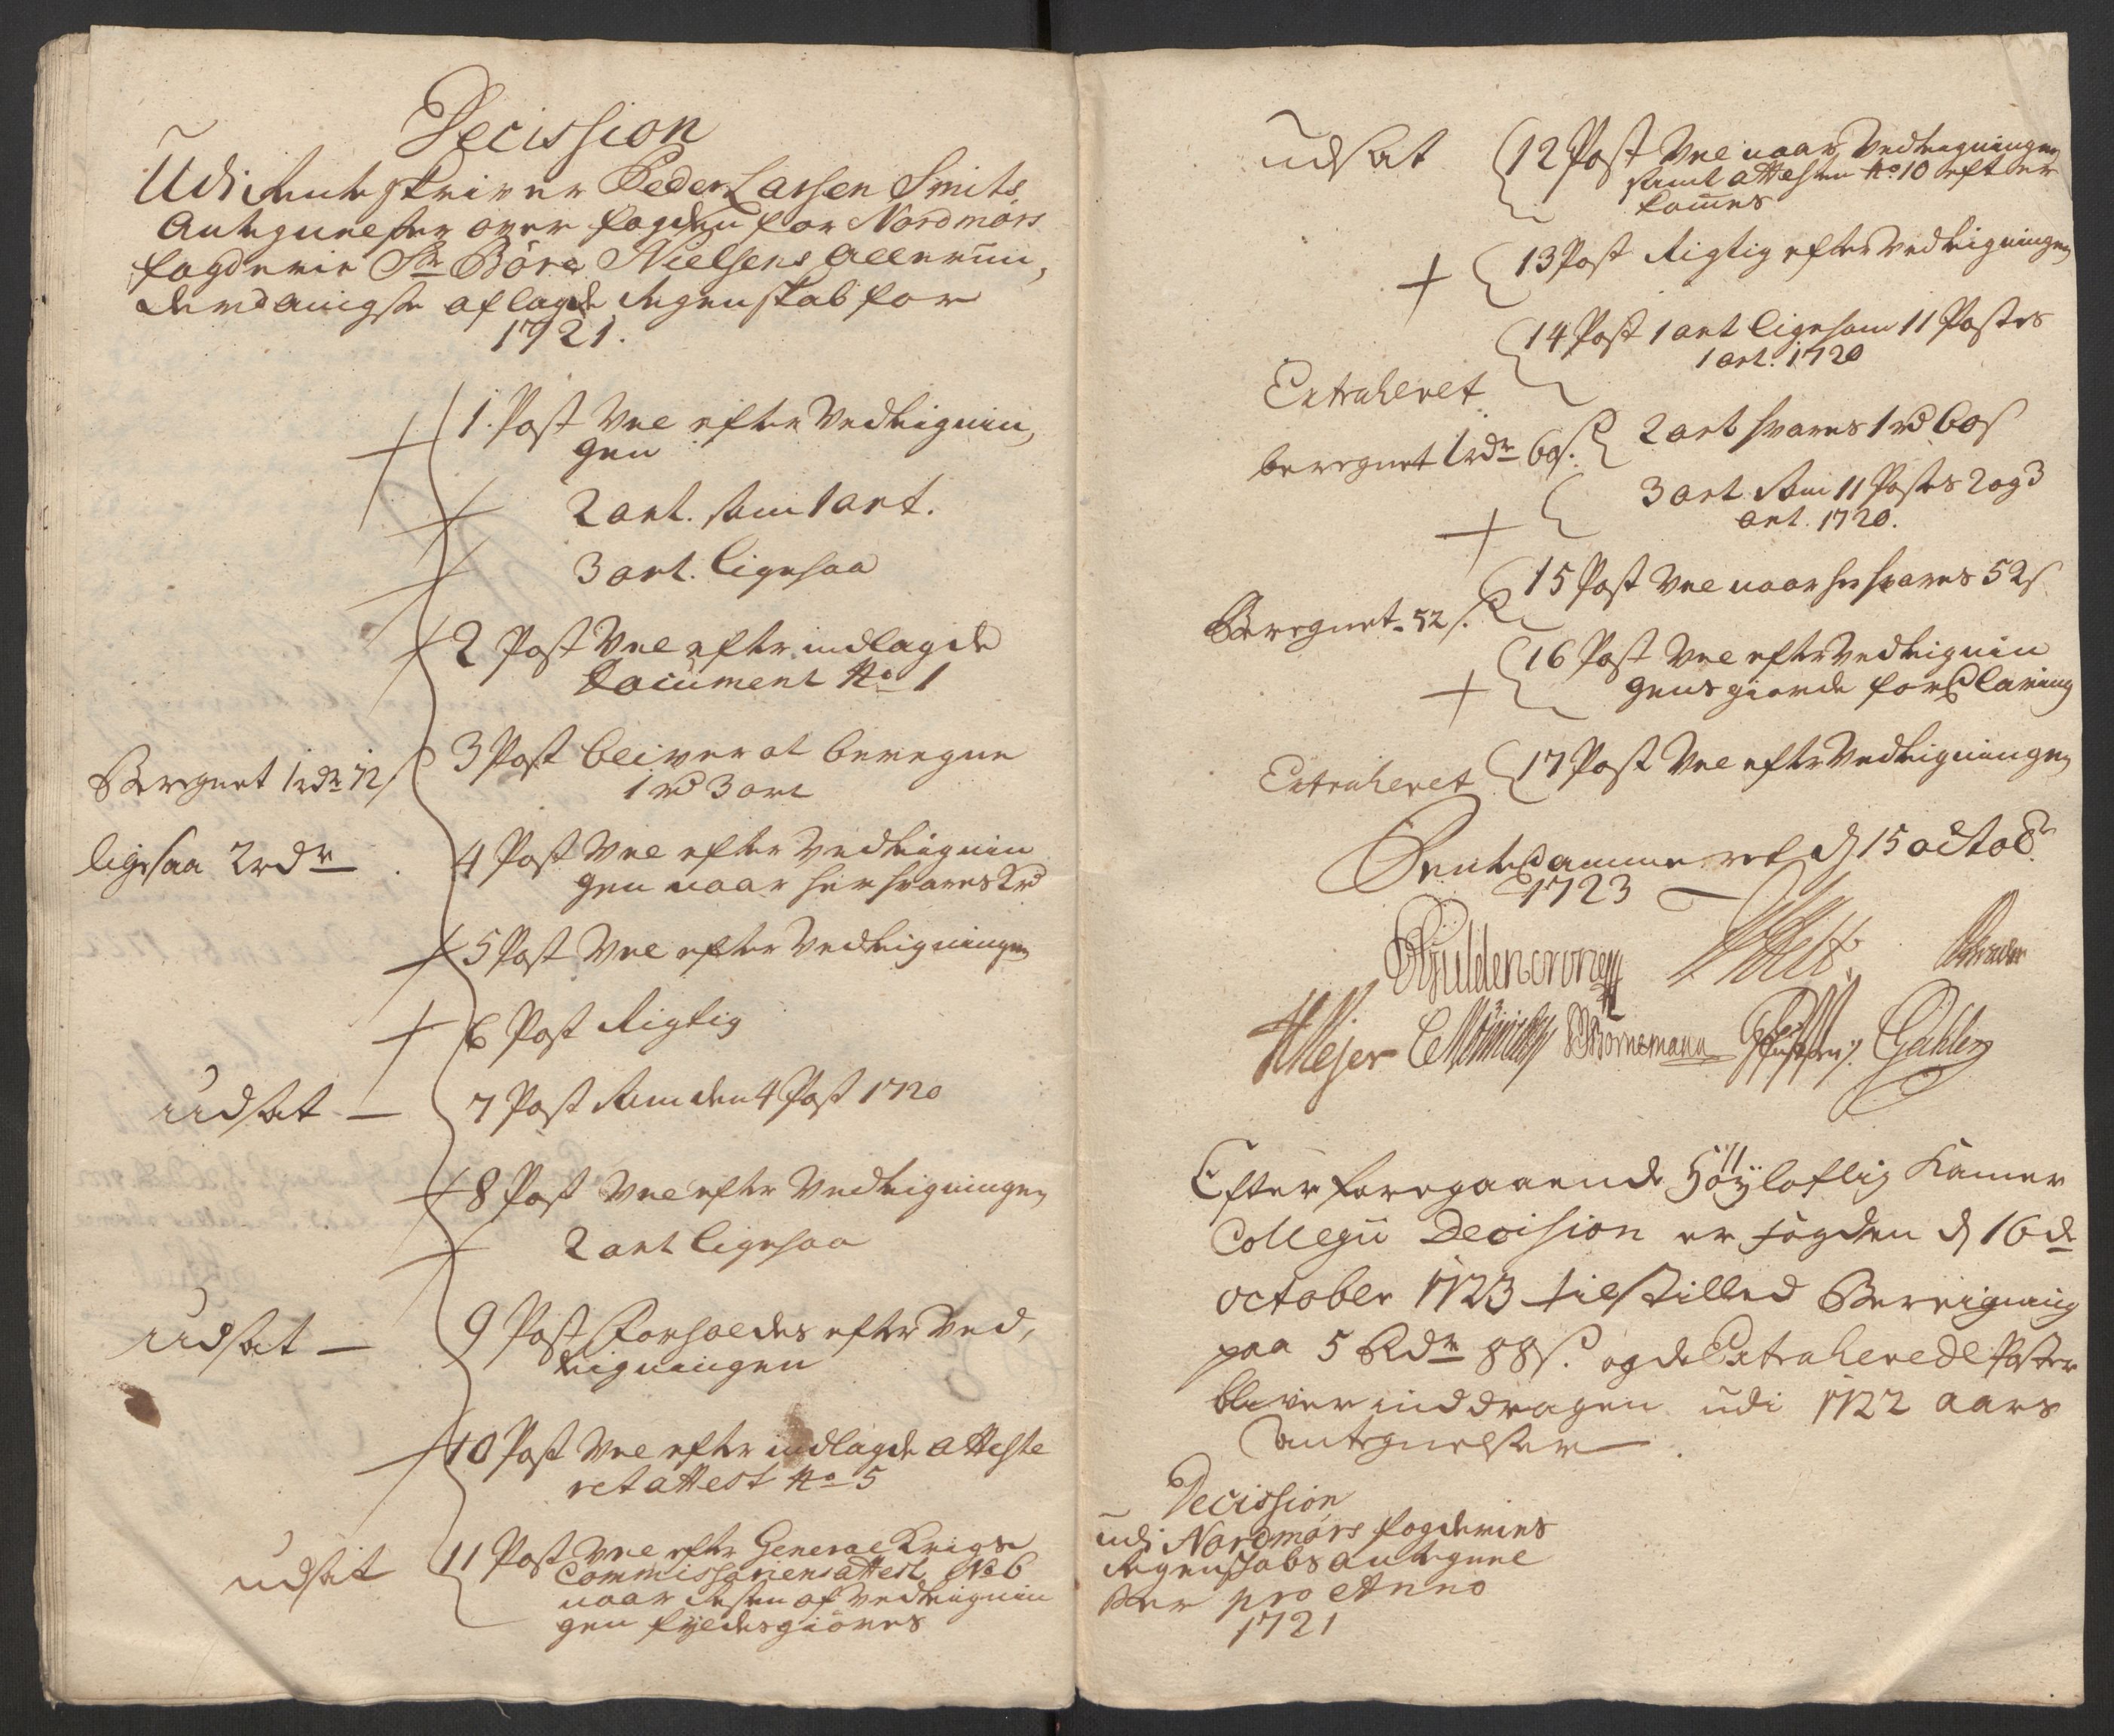 Decission
Udi Renteskriver Peder Larsen Smits
Antegnelser over fogden for Nordmørs
fogderie Sr Børe Nielsens allerun,
derdanigste aflagde Regenskab for
1721.
+ 1. Post Vel efter Vedtegnin,
gen
+ 2 art. som 1 art.
+ 3 art. ligesaa
+ 2 Post Vel efter indlagde
Document No 1
Beregnet 1 rdr 72 s 3 Post bliver at beregne
1 rd 3 ort
ligesaa 2 rdr 4 Post Vel efter Vedtegnin
gen naar her svares 2 rd
+ 5 Post Vel efter Vedtegningen
+ 6 Post Rigtig
udsat — 7 Post som den 4 Post 1720
+ 8 Post Vel efter Vedtegningen
+ 2 art ligesaa
udsat — 9 Post Forholdes efter Ved,
tegningen
+ 10 Post Vel efter indlagde atteste
ret attest No 5
udsat 11 Post Vel efter General Krigs
Commissariens attest No 6
naar Resten af Vedtegnin
gen fyldesgiøres
udsat 12 Post Vel naar Vedtegningen
samt attesten No 10 efter
kommes
+ 13 Post Rigtig efter Vedtegningen
Extraheret 14 Post 1 art ligesom 11 Postes
1 art. 1720
beregnet 1 rdr 60 s. 2 art svares 1 rd 60 s
+ 3 art som 11 Postes 2 og 3
art. 1720.
Beregnet 52 s. 15 Post Vel naar her svares 52 s
+ 16 Post Vel efter Vedtegnin
gens giorde forklaring
Extraheret 17 Post Vel efter Vedtegningen
Rente Cammeret d 15 octobr
1723
Guldencrone
HMejer Bornemann
Efter foregaaende Höyloflig Kamer
Collegii Decision er fogden d 16de
october 1723 tilstilled Beregning
paa 5 Rdr 88 s. og de Extraherede Poster
bliver inddragen udi 1722 aars
antegnelser
Decission
udi Nordmørs fogderies
Regenskabs antegnel
ser pro Anno
1721